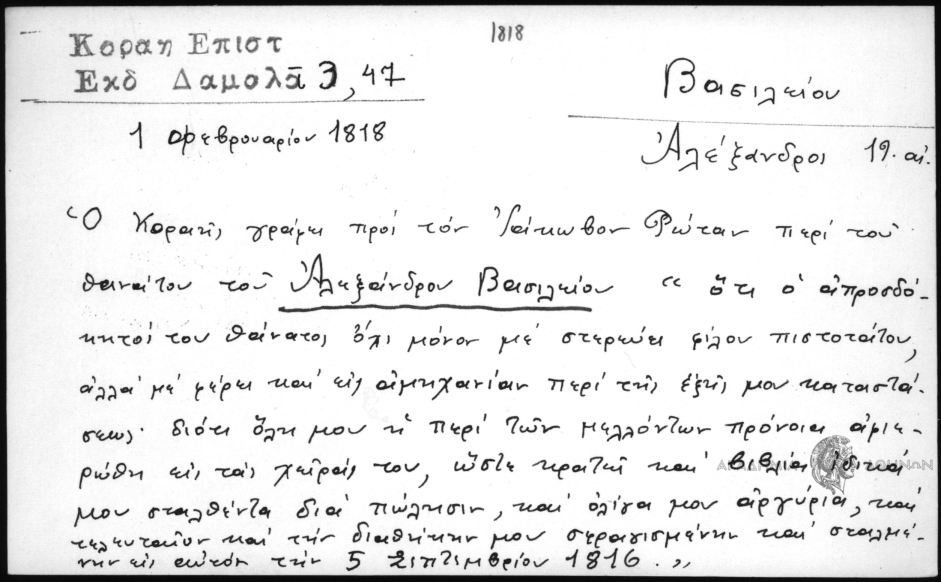 1818
Κοραη Επιστ
Εκδ Δαμαλᾶ 3, 47
Βασιλείου
1 Φεβρουαρίου 1818
Ἀλέξανδρος 19. αἰ.
Ὁ Κοραῆς γράφει πρός τόν Ἰάκωβον Ρώταν περί τοῦ
θανάτου τοῦ Ἀλεξάνδρου Βασιλείου " ὅτι ὁ ἀπροσδό-
κητός του θάνατος ὄχι μόνον μέ στερεύει φίλου πιστοτάτου,
ἀλλά μέ φέρει καί εἰς ἀμηχανίαν περί τῆς ἑξῆς μου καταστά-
σεως· διότι ὅλη μου ἡ περί τῶν μελλόντων πρόνοια ἀφιε-
ρώθη εἰς τάς χεῖράς του, ὥστε κρατεῖ καί βιβλία ἰδικά
μου σταλθέντα διά πώλησιν, καί ὀλίγα μου ἀργύρια, καί
τελευταῖον καί τήν διαθήκην μου σφραγισμένην καί σταλμέ-
νην εἰς αὐτόν τήν 5 Σεπτεμβρίου 1816 . "